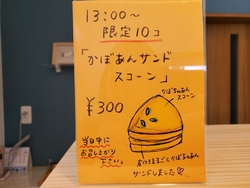 13:00〜
限定10コ
「かぼあんサンド
スコーン」
¥300
かぼちゃあん
スコーン
当日中に
お召し上がり
下さい。
皮付きまるごとかぼちゃあん
サンドしました